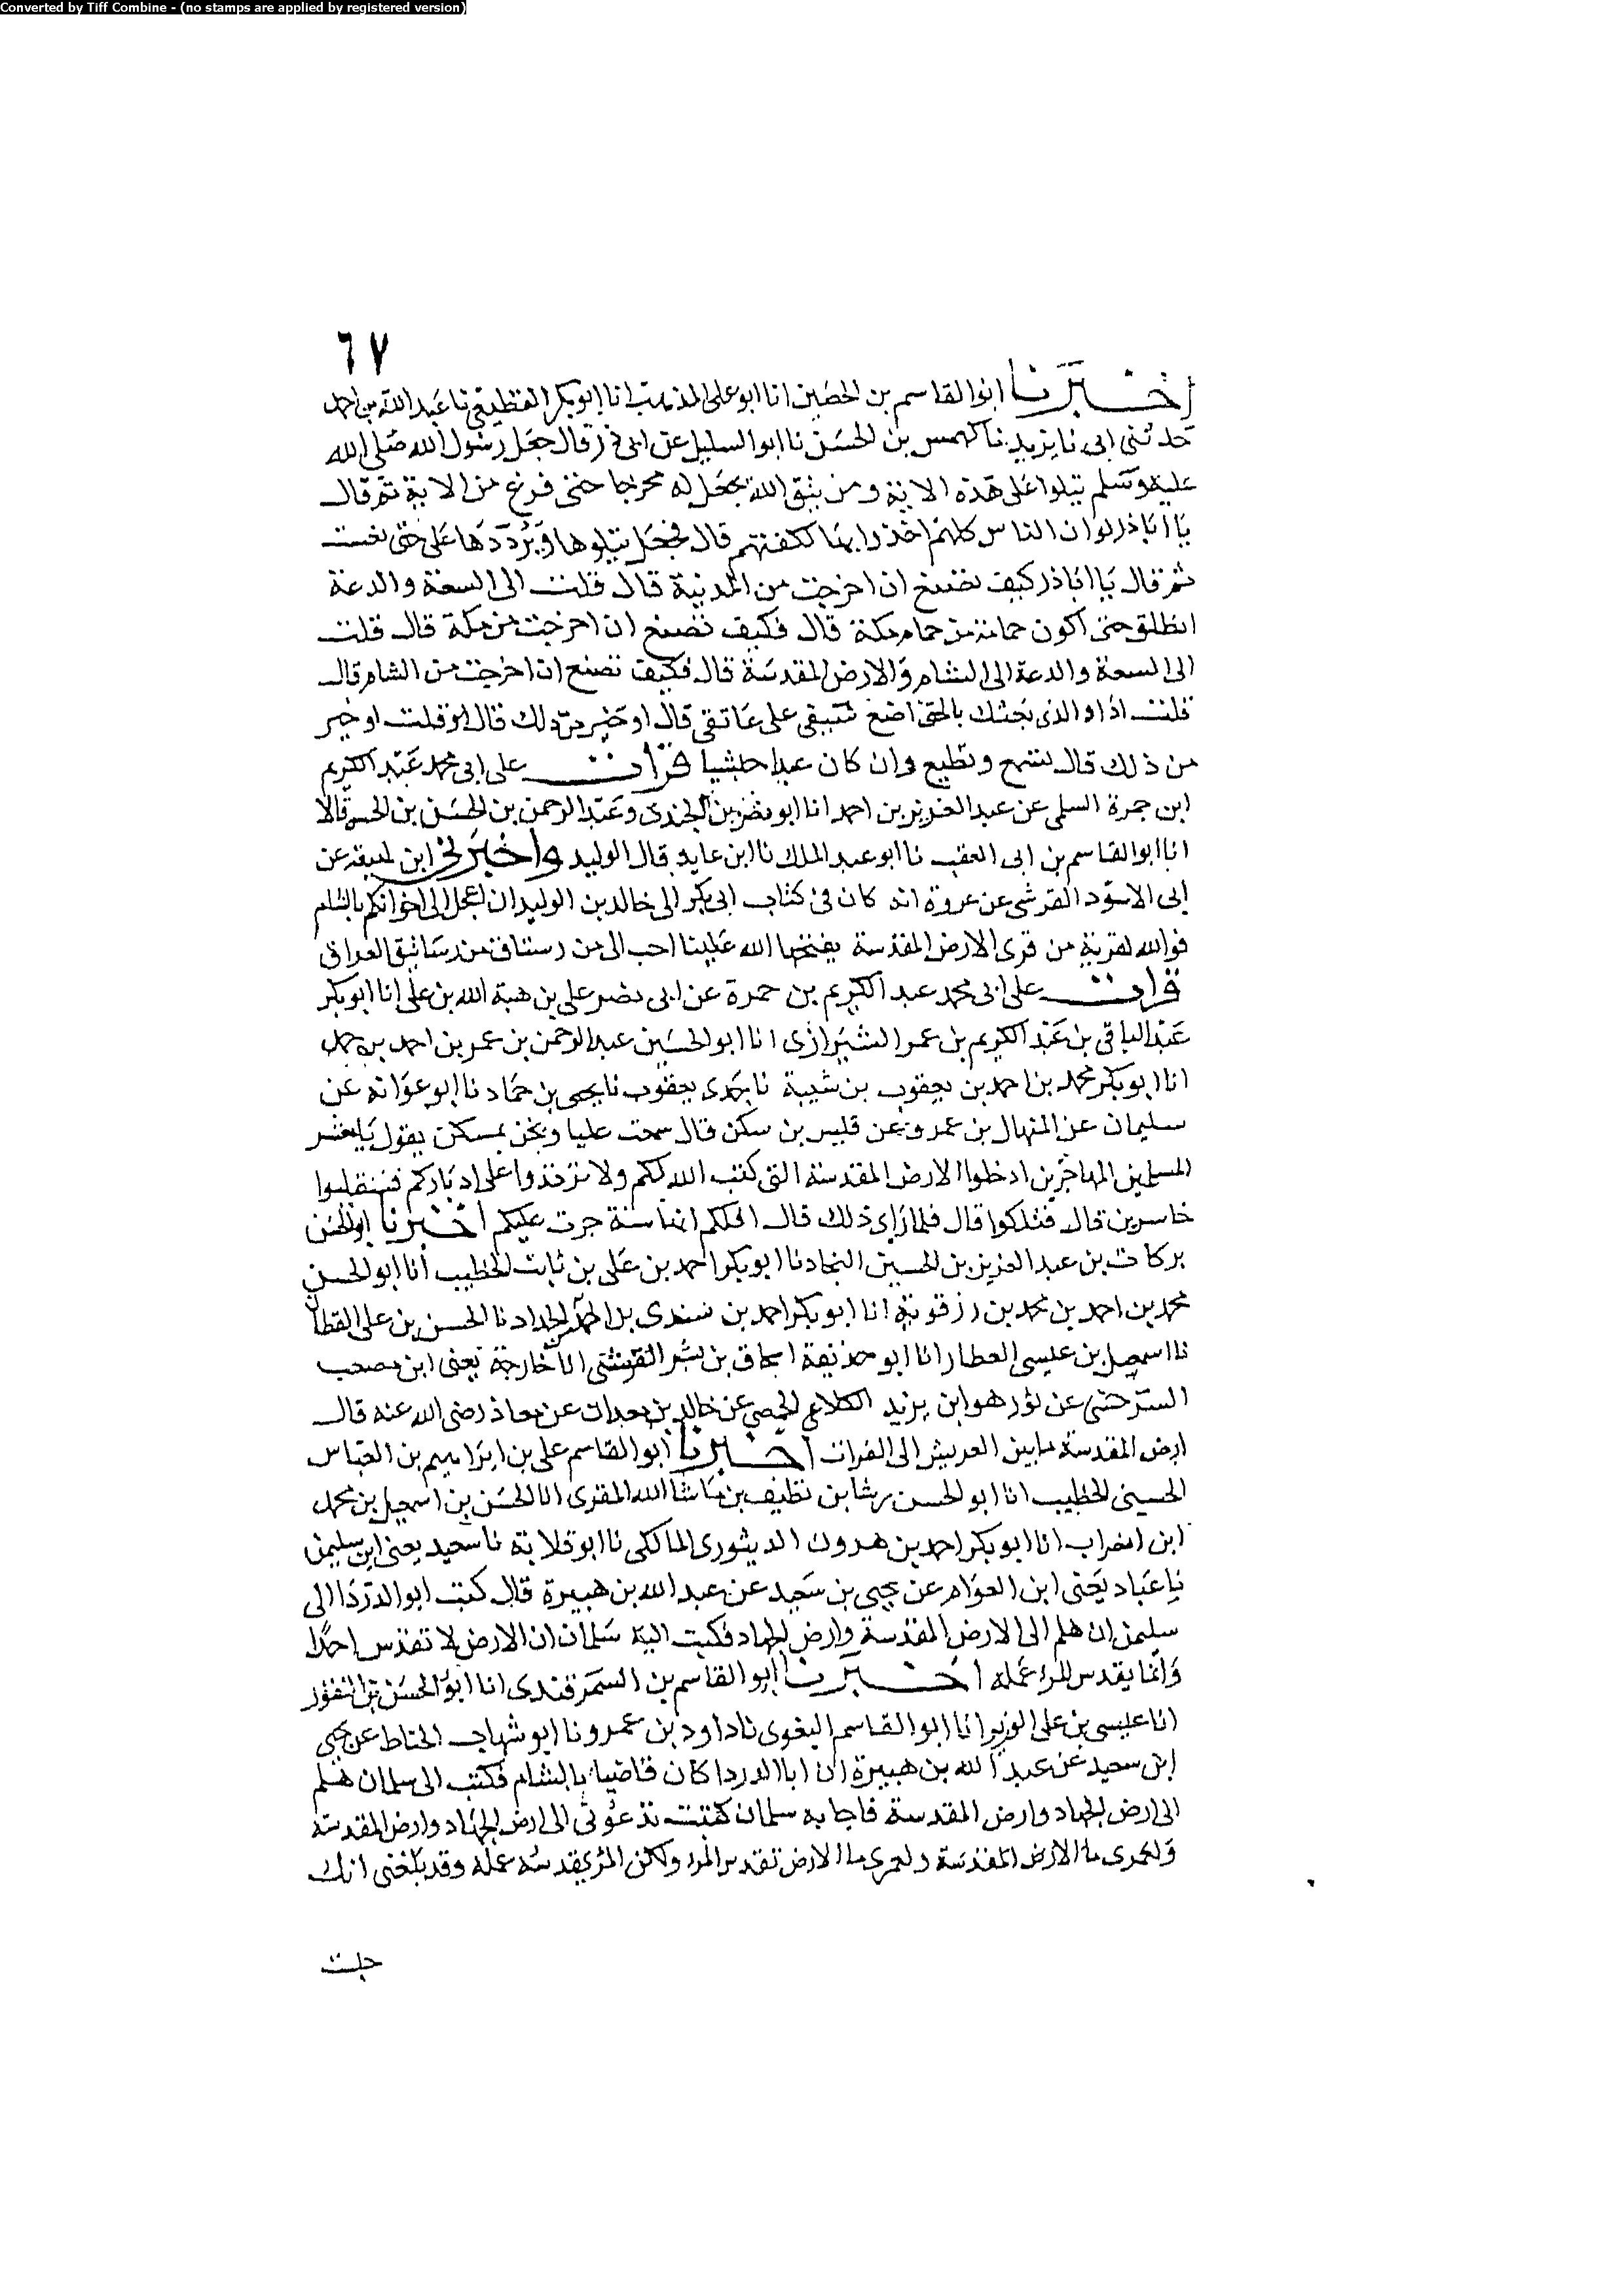 Converted by Tiff Combine - (no stamps are applied by registered version)
٦٧
اخبرنا ابوا القاسم بن الحصين انا ابو على المذهب انا ابو بكر القطيعى نا عبد الله بن احمد
حدثنى ابى نا يزيد نا كهمس بن الحسن نا ابوا السليل عن ابى ذر قال جعل رسول الله صلى الله
عليه وسلم يتلوا على هذه الاية ومن يتق الله يجعل له مخرجا حتى فرغ من الاية ثم قال
يا ابا ذر لو ان الناس كلهم اخذوا بها لكفتهم قال فجعل يتلوها ويرددها على حتى نعست
ثم قال يا ابا ذر كيف تصنع ان اخرجت من المدينة قال قلت الى السعة والدعة
انطلق حتى اكون حمامة من حمام مكة قال فكيف تصنع ان اخرجت من مكة قال قلت
الى السعة والدعة الى الشام والارض المقدسة قال فكيف تصنع ان اخرجت من الشام قال
قلت اذا والذى بعثك بالحق اضع سيفى على عاتقى قال او خير من ذلك قال او قلت او خير
من ذلك قال تسمع وتطيع وان كان عبدا حبشيا قرات على ابى محمد عبد الكريم
ابن حمزة السلمى عن عبد العزيز بن احمد انا ابو نصر بن الجندى وعبد الرحمن بن الحسن بن الحسن قالا
انا ابوا القاسم بن ابى العقب نا ابو عبد الملك نا ابن عايد قال الوليد واخبرنى ابن لهيعة عن
ابى الاسود القرشى عن عروة انه كان فى كتاب ابى بكر الى خالد بن الوليد ان اعجل الى اخوانكم بالشام
فوالله لقرية من قرى الارض المقدسة يفتحها الله علينا احب الى من رستاق من رساتيق العراق
قرات على ابى محمد عبد الكريم بن حمزة عن ابى نصر على بن هبة الله بن على انا ابو بكر
عبد الباقى بن عبد الكريم بن عمر الشيرازى انا ابو الحسين عبد الرحمن بن عمر بن احمد بن حمه
انا ابو بكر محمد بن احمد بن يعقوب بن شيبة نا جدى يعقوب نا يحيى بن حماد نا ابو عوانه عن
سليمان عن المنهال بن عمرو عن قليس بن سكن قال سمعت عليا ونحن بمسكن يقول يا معشر
المسلمين المهاجرين ادخلوا الارض المقدسة التى كتب الله لكم ولا ترتدوا على ادباركم فتنقلبوا
خاسرين قال فتلكوا قال فلما راى ذلك قال اف لكم انها سنة جرت عليكم اخبرنا ابو الحسن
بركات بن عبد العزيز بن الحسين النجاد نا ابو بكر احمد بن على بن ثابت الخطيب انا ابو الحسن
محمد بن احمد بن محمد بن رزقوية انا ابو بكر احمد بن سندى بن الحسن الحداد نا الحسن بن على القطان
نا اسمعيل بن عيسى العطار انا ابو حذيفة اسحاق بن بشر القرشى انا خارجة يعنى ابن مصعب
السرخسى عن ثور هو ابن يزيد الكلاعى الحمصى عن خالد بن معدان عن معاذ رضى الله عنه قال
ارض المقدسة ما بين العريش الى الفرات اخبرنا ابوا القاسم على بن ابراهيم بن العباس
الحسينى الخطيب انا ابو الحسن رشا بن نظيف بن ماشا الله المقرى انا الحسن بن اسمعيل بن محمد
ابن الضراب انا ابو بكر احمد بن هرون الدينورى المالكى نا ابو قلابة نا سعيد يعنى ابن سليمن
نا عباد يعنى ابن العوام عن يحيى بن سعيد عن عبد الله بن هبيرة قال كتب ابو الدردا الى
سليمن ان هلم الى الارض المقدسة وارض الجهاد فكتب اليه سلمان ان الارض لا تقدس احدا
وانما يقدس المرا عمله اخبرنا ابو القاسم بن السمرقندى انا ابو الحسن بن النقور
انا عيسى بن على الوزير انا ابو القاسم البغوى نا داود بن عمرو نا ابو شهاب الحناط عن يحيى
ابن سعيد عن عبد الله بن هبيرة ان ابا الدردا كان قاضيا بالشام فكتب الى سلمان هلم
الى ارض الجهاد وارض المقدسة فاجابه سلمان كتبت تدعونى الى ارض الجهاد وارض المقدسة
ولعمرى ما الارض المقدسة ولعمرى ما الارض تقدس المرا ولكن المر يقدسه عمله وقد بلغنى انك
جلت